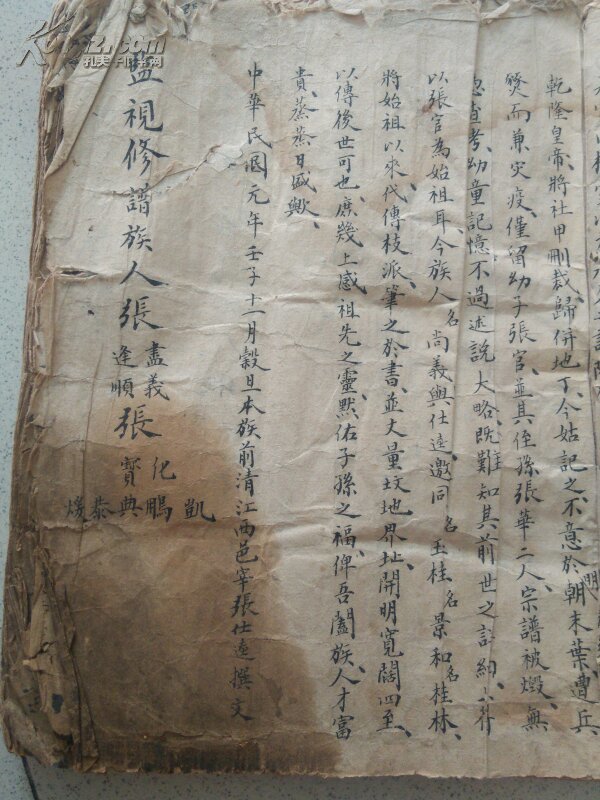 乾隆皇帝、將社甲刪裁、歸併地丁、今姑記之、不意於朝末葉、遭兵
明
燹而兼灾疫、僅留幼子張官、並其侄孫張華二人、宗譜被燬、無
查考、幼童記憶、不過述說大略、既難知其前世之詳細、
以張官為始祖耳、今族人名尚義與仕逵、邀同名玉桂、名景和、名桂林、
將始祖以來、代傳枝派、筆之於書、並丈量坟地界址、開明寬闊四至、
以傳後世可也、庶幾上感祖先之靈、默佑子孫之福、俾吾闔族、人才富
貴、蒸蒸日盛歟、
中華民國元年壬子十一月穀旦本族前清江西邑宰張仕逵撰文
監視修譜族人張 盡義 逢順 張 化鵬 寶典
凱 恭
孔夫子旧书网